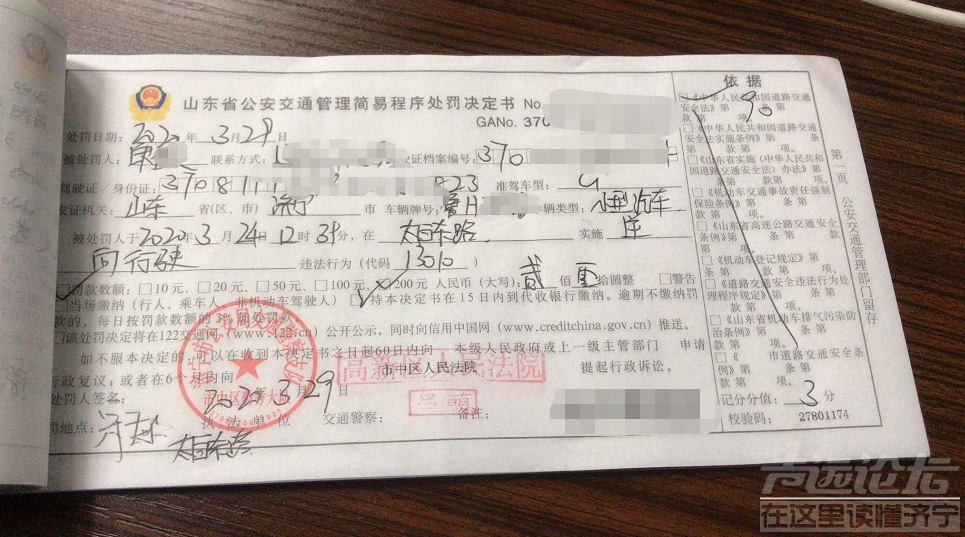 山东省公安交通管理简易程序处罚决定书 No.
GANo. 370
处罚日期：2020年3月29日
被处罚人： 联系方式： 证档案编号：370
驾驶证/身份证：370811 023 准驾车型：
发证机关：山东 省(区、市) 济宁 市 车辆牌号：鲁H 辆类型：小型汽车
被处罚人于2020年3月24日12时39分，在 太白东路 实施 逆
向行驶 违法行为（代码 13010 ）
□罚款数额：□10元、□20元、□50元、□100元、200元 人民币（大写）：贰佰零拾圆整 □警告
□当场缴纳（行人、乘车人、非机动车驾驶人）□持本决定书在15日内到代收银行缴纳。逾期不缴纳罚
款的，每日按罚款数额的3%加处罚款。
□该处罚决定将在122交通网（www.122.cn）公开公示，同时向信用中国网（www.creditchina.gov.cn）推送。
如不服本决定的，可以在收到本决定书之日起60日内向 本级人民政府或上一级主管部门 申请
行政复议；或者在6个月内向 市中区人民法院 提起行政诉讼。
高新 人民法院
处罚人签名： 2020年3月29日
执法单位 交通警察： 备注：
罚地点：
太白东路
依据
□《中华人民共和国道路交通
安全法》第90条第
款第 项。
□《中华人民共和国道路交通
安全法实施条例》第 条
第 款第 项。
□《山东省实施〈中华人民共和
国道路交通安全法〉办法》第
条第 款第 项。
□《机动车交通事故责任强制
保险条例》第 条第
款第 项。
□《山东省高速公路交通安全
条例》第 条第 款
第 项。
□《机动车登记规定》第
条 第 款第 项。
□《道路交通安全违法行为处
理程序规定》第 条第
款第 项。
□《山东省机动车排气污染防
治条例》第 条第
款第 项。
□《 市道路交通安全条
例》第 条第 款
第 项。
记分分值：3分
校验码：27801174
第一页 公安交通管理部门留存
在这里读懂济宁